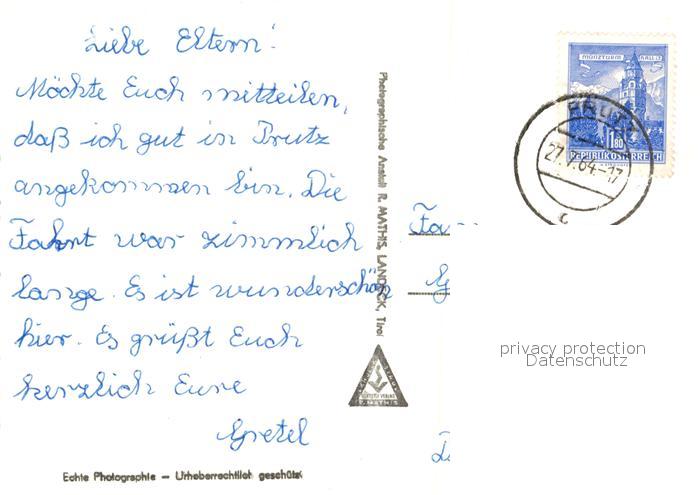 Liebe Eltern!
Möchte Euch mitteilen,
daß ich gut in Prutz
angekommen bin. Die
Fahrt war zimmlich
lange. Es ist wunderschön
hier. Es grüßt Euch
herzlich Eure
Gretel
Echte Photographie – Urheberrechtlich geschützt
Photographische Anstalt R. MATHIS, LANDECK, Tirol
R. MATHIS
MÜNZTURM HALL i. T.
1.80
REPUBLIK ÖSTERREICH
PRUTZ
27.V.64-17
c
Fa-
G
privacy protection
Datenschutz